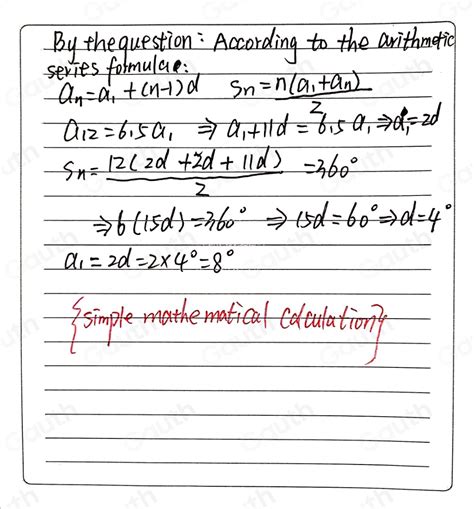 By the question: According to the arithmetic
series formulae:
an=a1+(n-1)d Sn=n(a1+an)/2
a12=6.5a1 ⇒ a1+11d=6.5a1⇒a1=2d
Sn=12(2d+2d+11d)/2=360°
⇒6(15d)=360° ⇒15d=60°⇒d=4°
a1=2d=2×4°=8°
{simple mathematical calculation}